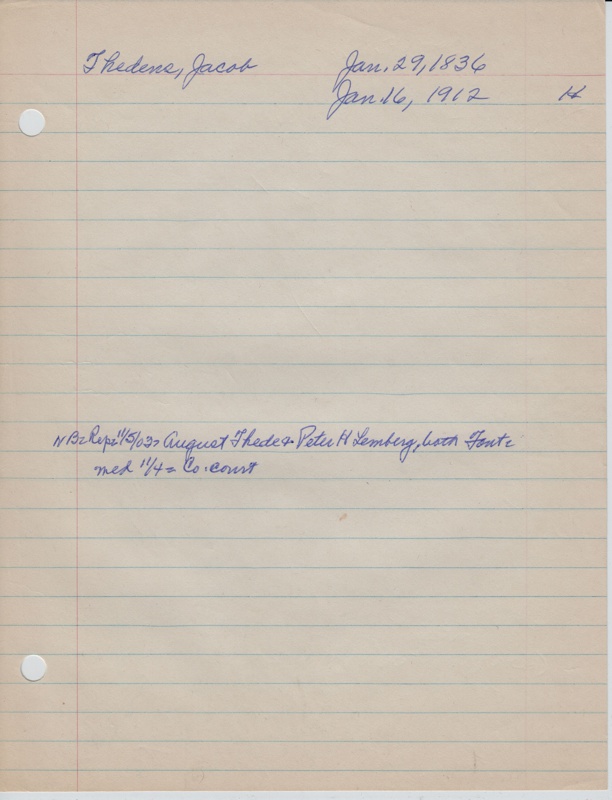 Thedens, Jacob Jan. 29, 1836
Jan. 16, 1912 H
NB= Rep= 11/5/03= August Thede & Peter H Lemberg, both Font=
med 11/4= Co. court